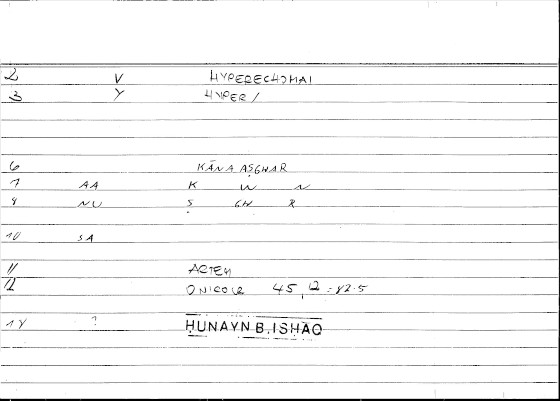 2 V HYPERECHOMAI
3 Y HYPER/
6 KĀNA AṢGHAR
7 AA K W N
8 NU Ṣ GH R
10 SA
11 ARTEM
12 ONIROCR 45,12 = 42.5
14 ? ḤUNAYN B. ISḤĀQ